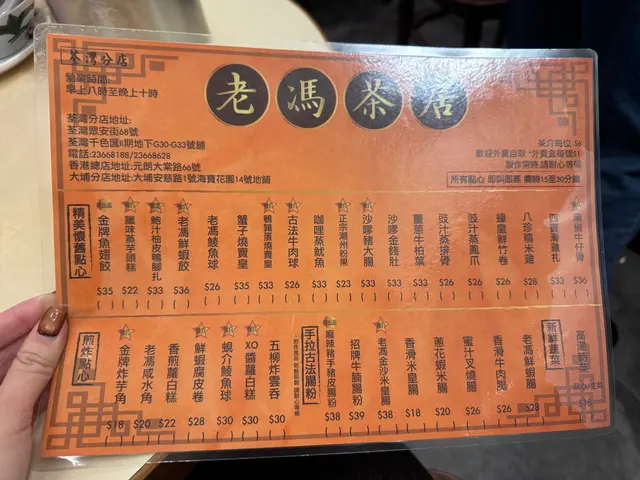 荃灣分店
營業時間:
早上八時至晚上十時
老馮茶居
荃灣分店地址:
荃灣眾安街68號
荃灣千色匯II期地下G30-G33號舖
電話:23668188/23668628
香港總店地址:元朗大棠路66號
大埔分店地址:大埔安慈路1號海寶花園14號地舖
茶介每位 $6
歡迎外賣自取 *外賣盒每個$1
製作需時,請耐心等候
所有點心 即叫即蒸 需時15至20分鐘
精美懷舊點心
金牌魚翅餃 $35
臘味蒸芋頭糕 $22
鮑汁柚皮鴨腳扎 $33
老馮鮮蝦餃 $36
老馮鯪魚球 $26
蟹子燒賣皇 $35
鵪鶉蛋燒賣皇 $33
古法牛肉球 $26
咖哩蒸魷魚 $33
正宗潮州粉果 $23
沙嗲豬大腸 $33
沙嗲金錢肚 $33
薑蔥牛柏葉 $33
豉汁蒸排骨 $26
豉汁蒸鳳爪 $26
蠔皇鮮竹卷 $26
八珍糯米雞 $28
四寶滑雞扎 $33
黑椒牛仔骨 $36
煎炸點心
金牌炸芋角 $18
老馮咸水角 $20
香煎蘿白糕 $22
鮮蝦腐皮卷 $28
蜆介鯪魚球 $30
XO醬蘿白糕 $30
五柳炸雲吞 $30
手拉古法腸粉
麻辣豬手豬皮腸粉 $38
招牌牛腩腸粉 $39
老馮金沙米皇腸 $38
香滑米皇腸 $18
蔥花蝦米腸 $20
蜜汁叉燒腸 $26
香滑牛肉腸 $26
老馮鮮蝦腸 $28
新鮮蔬菜
高湯時菜 $18